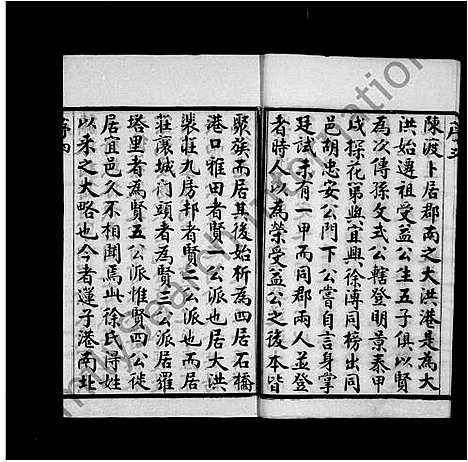 序三
陳渡卜居郡南之大洪港是為大
洪始遷祖受益公生五子俱以賢
為次傳孫文式公轄登明景泰甲
戌探花第與宜興徐溥同榜出同
邑胡忠安公門下公嘗自言身掌
廷試未有一甲而同郡兩人並登
者時人以為榮受益公之後本皆
聚族而居其後始析為四居石橋
港口雅田者賢一公派也居大洪
裴莊九房邦者賢二公派也而居
莊讓城門頭者為賢三公派居羅
塔里者為賢五公派惟賢四公徙
居宜邑久不相聞焉此徐氏得姓
以來之大略也今者蓬子港南北
序四